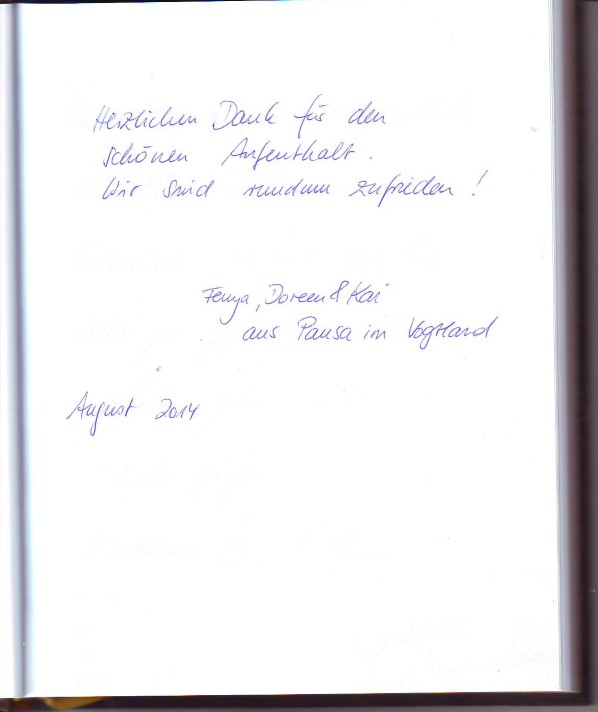 Herzlichen Dank für den
schönen Aufenthalt.
Wir sind rundum zufrieden!
Fenja, Doreen & Kai
aus Pausa im Vogtland
August 2014